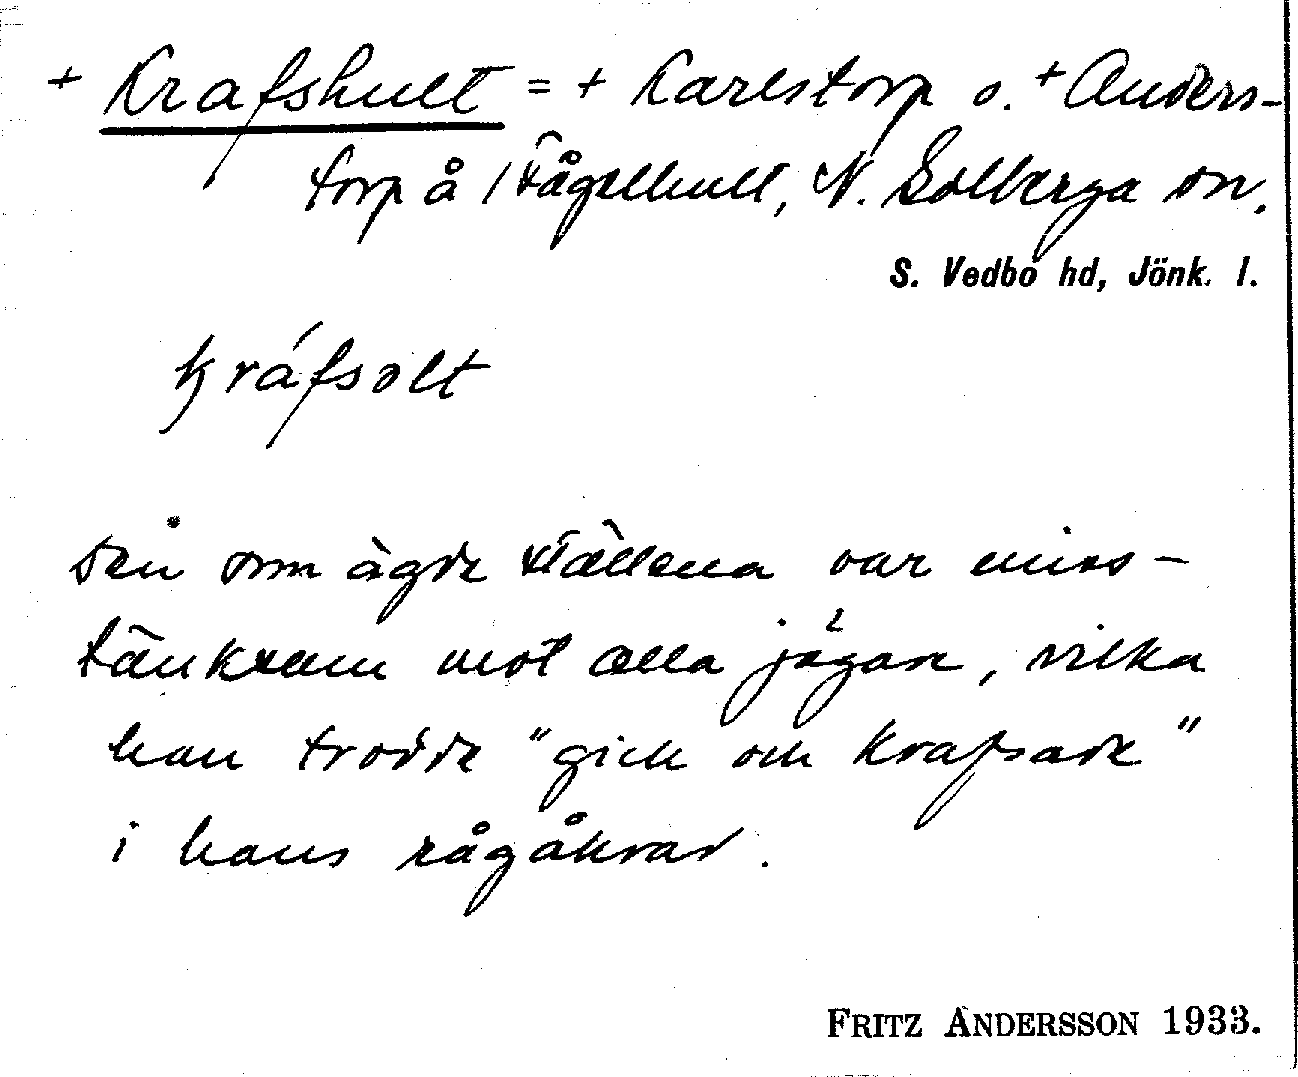 + Krafshult = + Karlstorp o. + Anders-
torp å / Fågelhult, N. Solberga sn.
S. Vedbo hd, Jönk. l.
kráfsolt
Den som ägde ställena var miss-
tänksam mot alla jägare, vilka
han trodde "gick och krafsade"
i hans rågåkrar.
FRITZ ANDERSSON 1933.